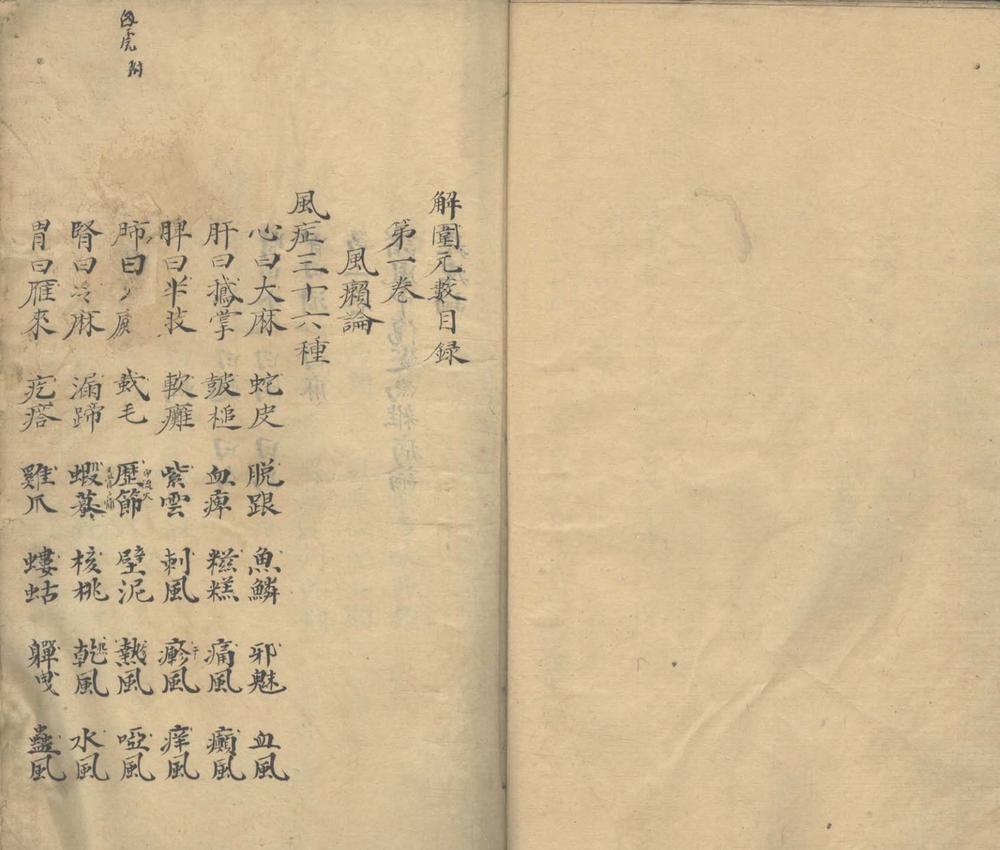 解圍元藪目録
第一卷
風癩論
風症三十六種
心曰大麻 蛇皮 脱跟 魚鱗 邪魅 血風
肝曰鵝掌 皷槌 血痺 糍糕 痛風 癲風
脾曰半肢 軟癱 紫雲 刺風 瘮風 痒風
肺曰 㦸毛 歷節 壁泥 熱風 啞風
腎曰冷麻 漏蹄 蝦蟇 核桃 乾風 水風
胃曰雁來 疙瘩 雞爪 螻蛄 軃曳 蠱風
虎 附